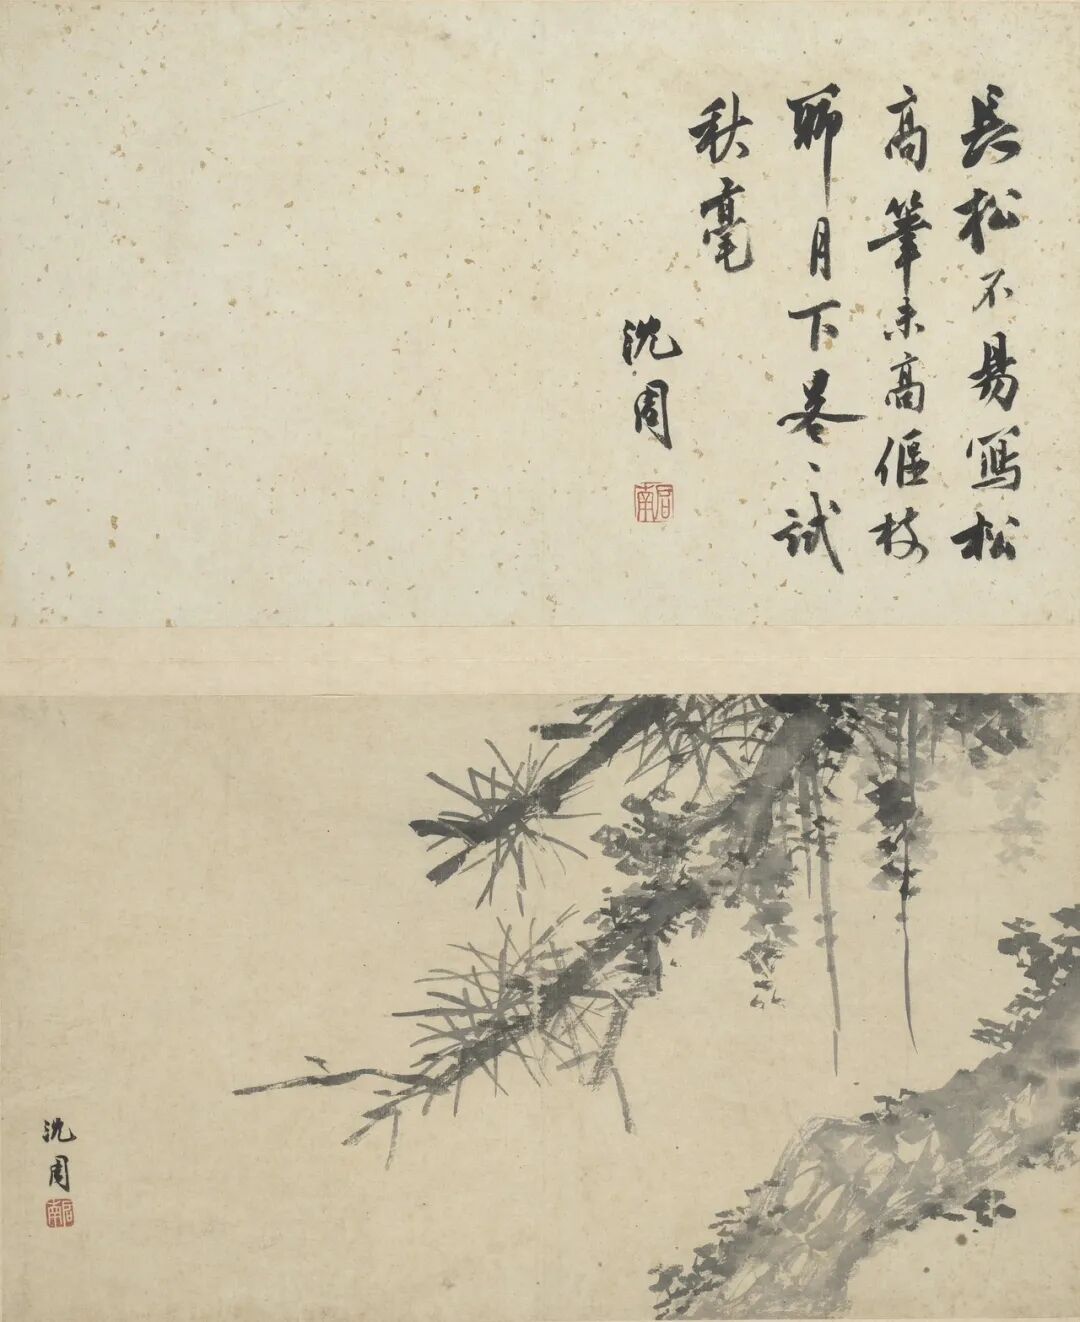 長松不易寫松
高筆未高偃枝
聊月下畧、試
秋毫
沈周
启南
沈周
启南